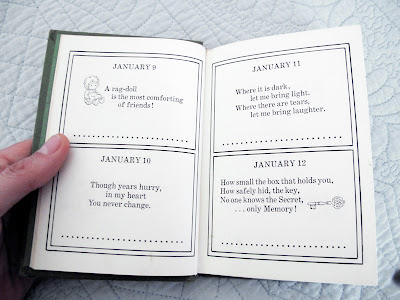 JANUARY 9
A rag-doll
is the most comforting
of friends!
JANUARY 10
Though years hurry,
in my heart
You never change.
JANUARY 11
Where it is dark,
let me bring light.
Where there are tears,
let me bring laughter.
JANUARY 12
How small the box that holds you,
How safely hid, the key,
No one knows the Secret,
. . . only Memory!